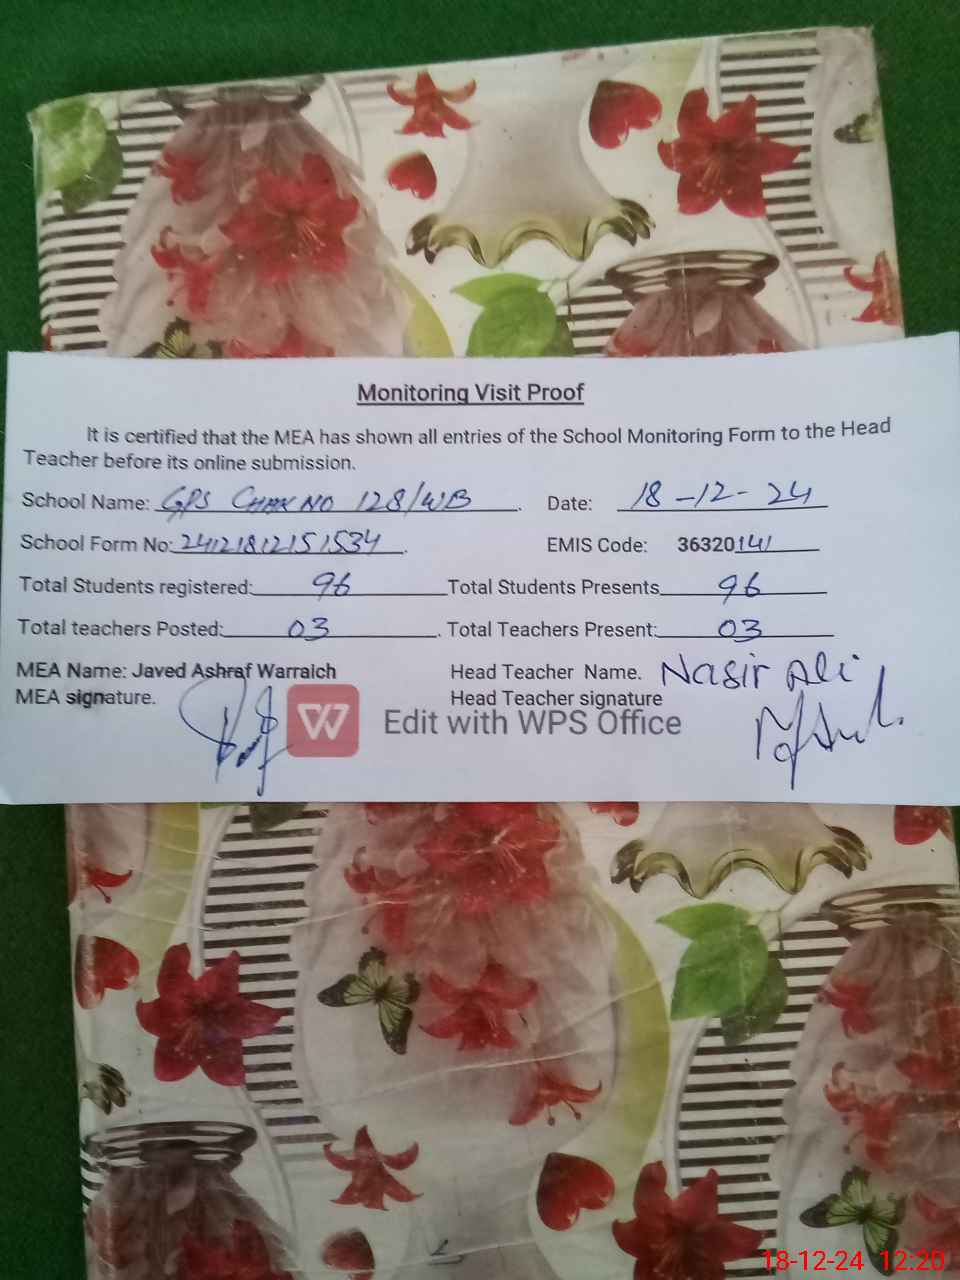 Monitoring Visit Proof
It is certified that the MEA has shown all entries of the School Monitoring Form to the Head
Teacher before its online submission.
School Name: GPS CHAK NO 128/WB. Date: 18-12-24
School Form No: 24121812151534. EMIS Code: 36320141
Total Students registered: 96 Total Students Presents 96
Total teachers Posted: 03. Total Teachers Present: 03
MEA Name: Javed Ashraf Warraich Head Teacher Name. Nasir Ali
MEA signature. Head Teacher signature
Edit with WPS Office
18-12-24 12:20